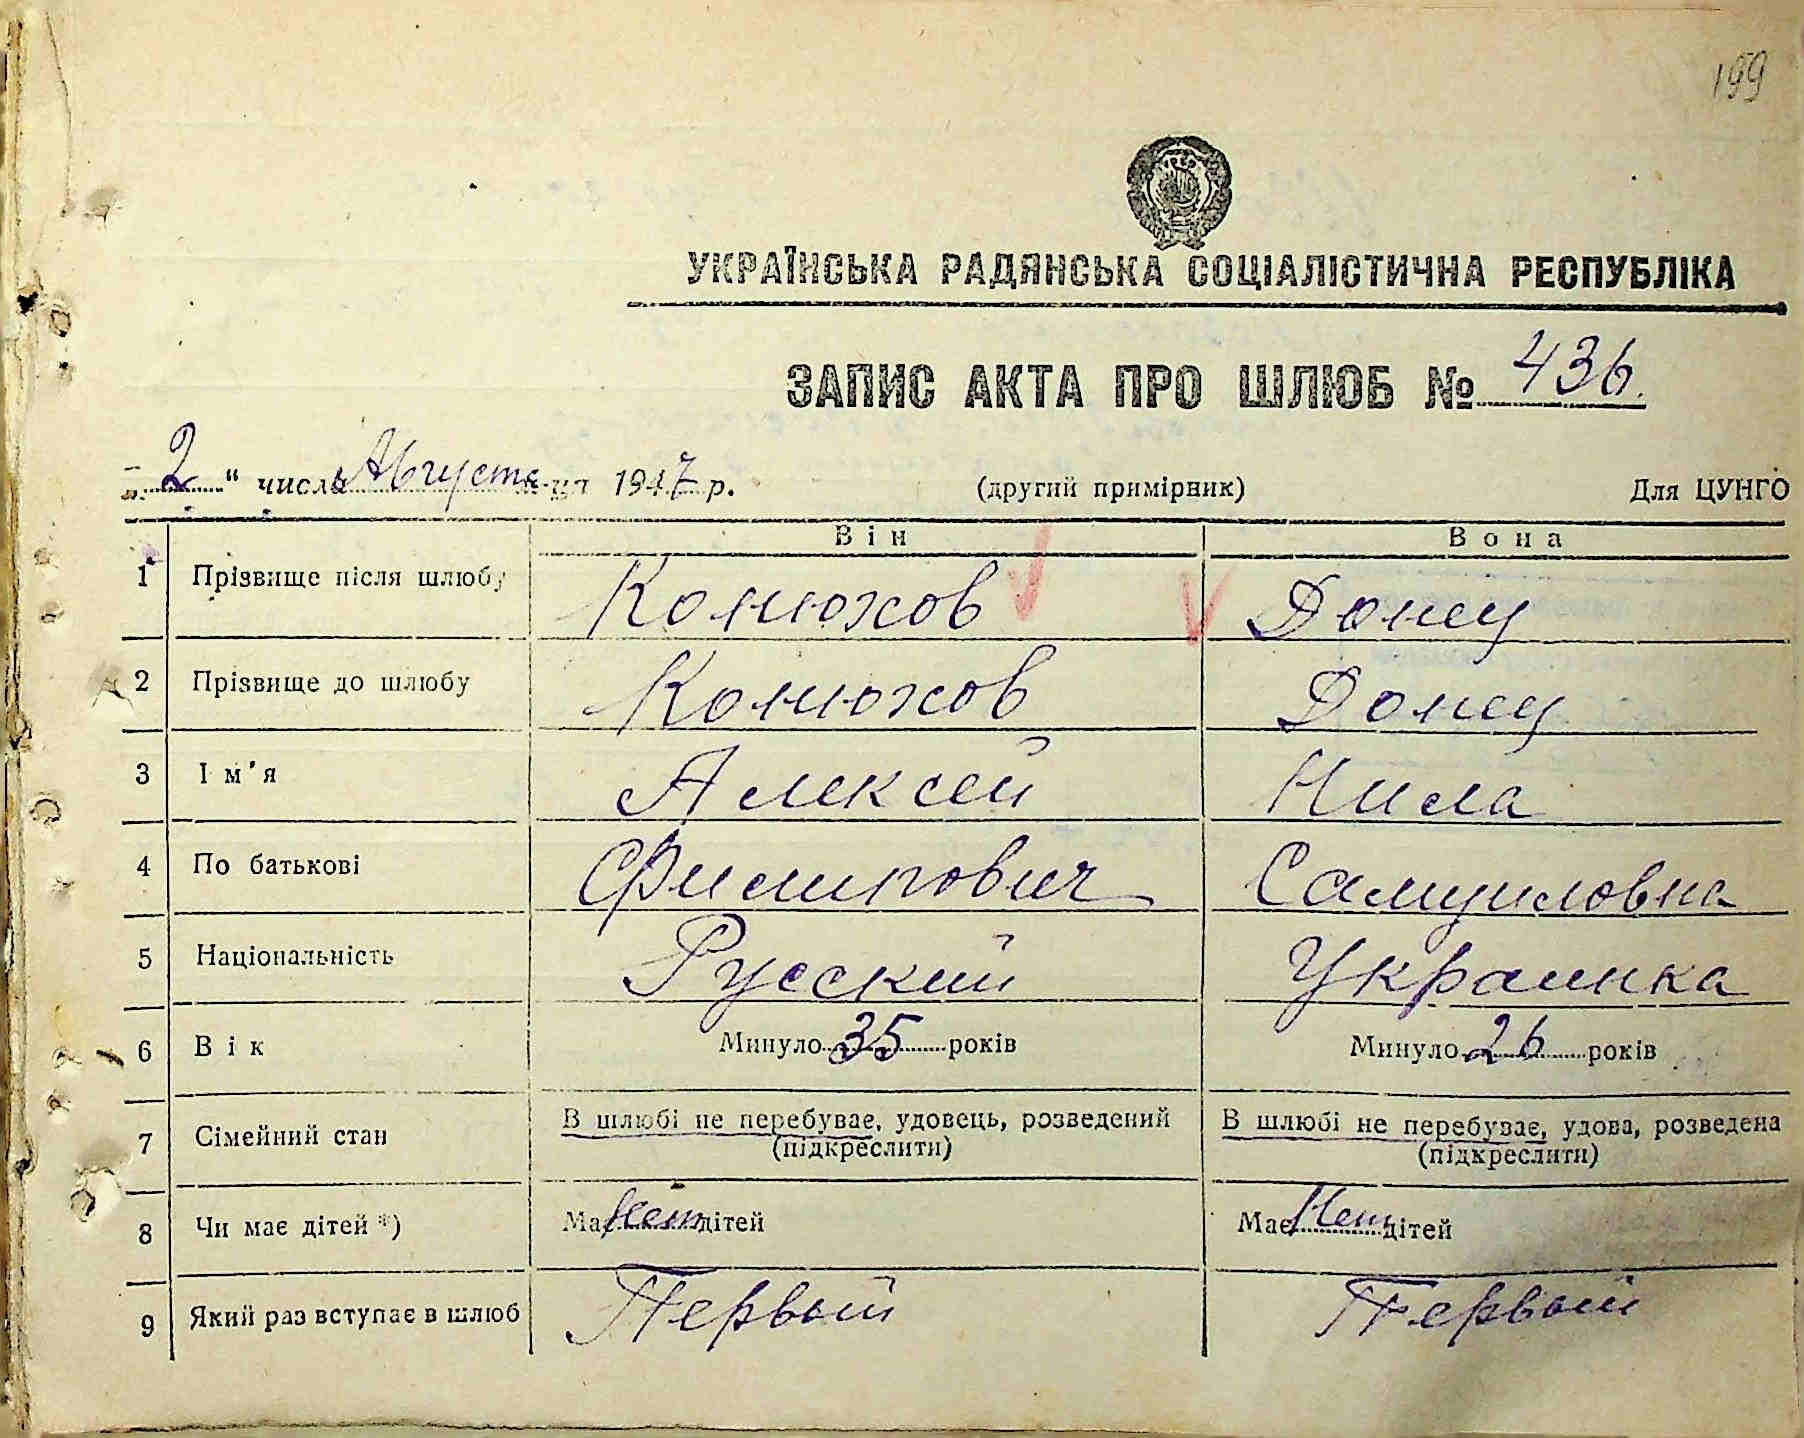 199
УКРАЇНСЬКА РАДЯНСЬКА СОЦІАЛІСТИЧНА РЕСПУБЛІКА
ЗАПИС АКТА ПРО ШЛЮБ № 436.
„2“ числа Августа м-ця 1947 р. (другий примірник) Для ЦУНГО
Він Вона
1 Прізвище після шлюбу Конюхов Донец
2 Прізвище до шлюбу Конюхов Донец
3 Ім'я Алексей Нила
4 По батькові Филипович Самуиловна
5 Національність Русский Украинка
6 Вік Минуло 35 років Минуло 26 років
7 Сімейний стан В шлюбі не перебуває, удовець, розведений (підкреслити) В шлюбі не перебуває, удова, розведена (підкреслити)
8 Чи має дітей *) Має Нет дітей Має Нет дітей
9 Який раз вступає в шлюб Первый Первый